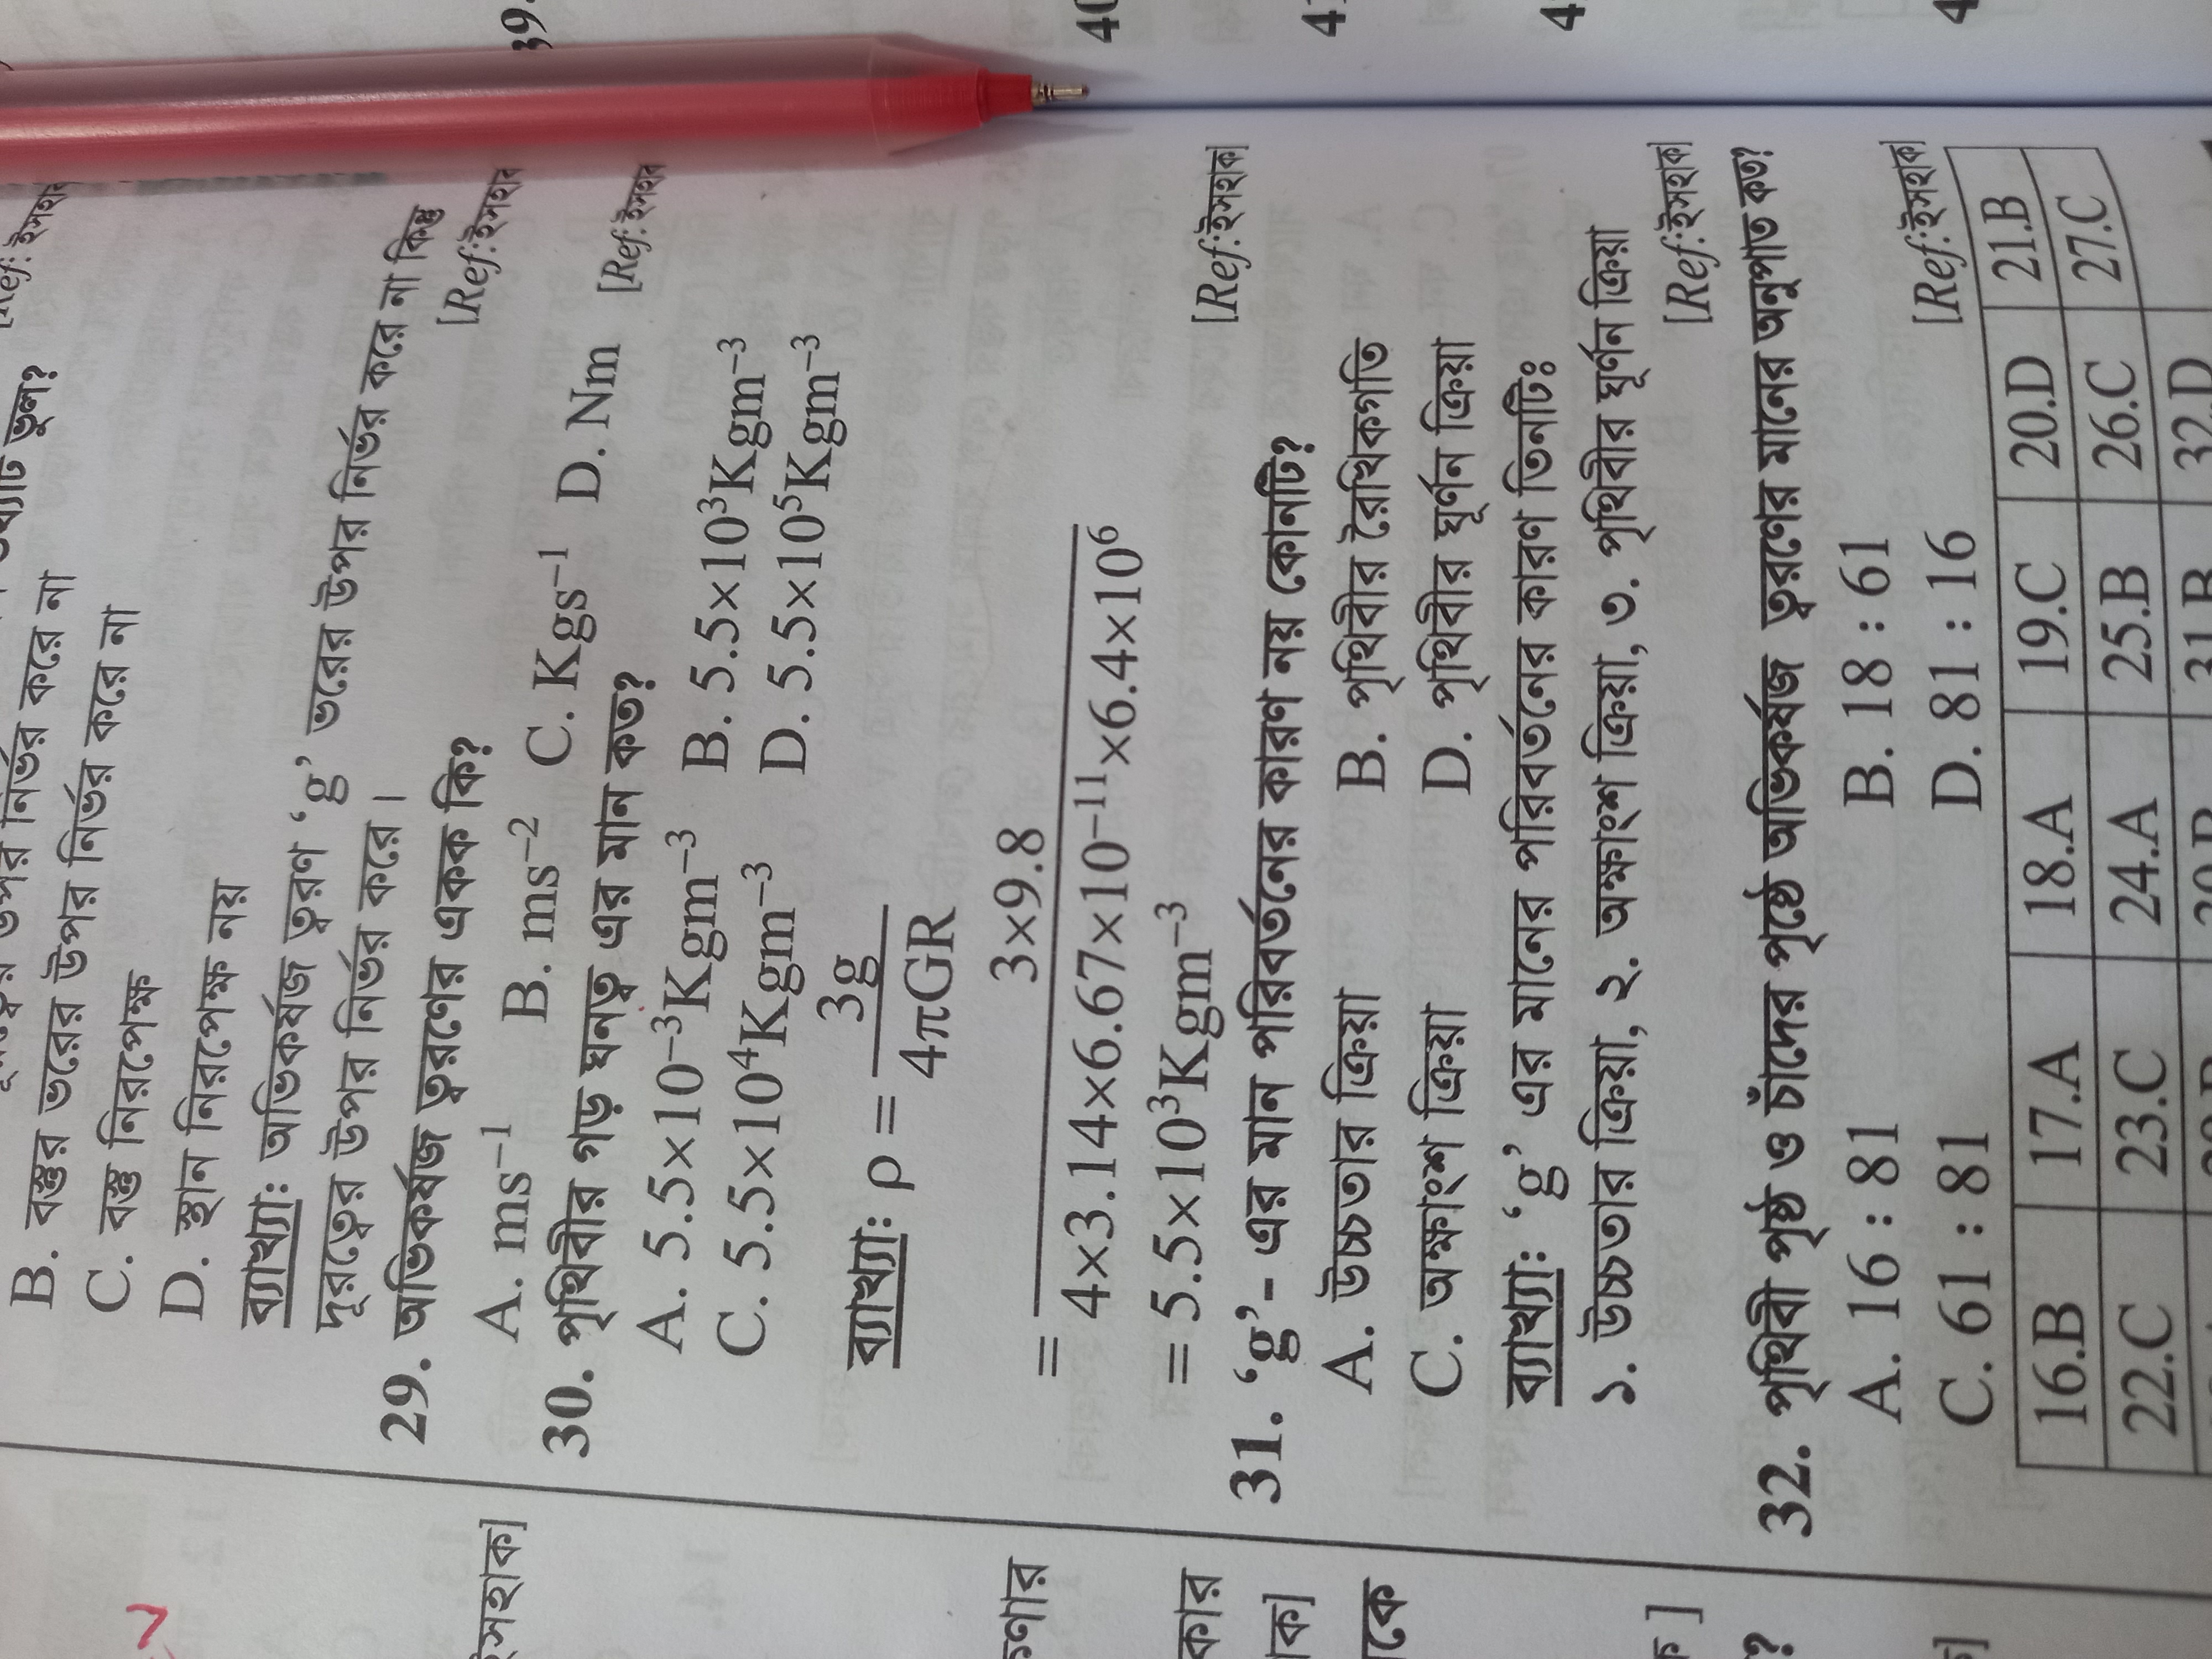 B. বস্তুর ভরের উপর নির্ভর করে না
C. বস্তু নিরপেক্ষ
D. স্থান নিরপেক্ষ নয়
ব্যাখ্যা: অভিকর্ষজ ত্বরণ ‘g’ ভরের উপর নির্ভর করে না কিন্তু
দূরত্বের উপর নির্ভর করে। [Ref:ইসহাক
29. অভিকর্ষজ ত্বরণের একক কি?
A. ms⁻¹ B. ms⁻² C. Kgs⁻¹ D. Nm [Ref:ইসহাক
30. পৃথিবীর গড় ঘনত্ব এর মান কত?
A. 5.5×10⁻³Kgm⁻³ B. 5.5×10³Kgm⁻³
C. 5.5×10⁴Kgm⁻³ D. 5.5×10⁵Kgm⁻³
ব্যাখ্যা: ρ = 3g / 4πGR
= 3×9.8 / 4×3.14×6.67×10⁻¹¹×6.4×10⁶
= 5.5×10³Kgm⁻³ [Ref:ইসহাক]
31. ‘g’- এর মান পরিবর্তনের কারণ নয় কোনটি?
A. উচ্চতার ক্রিয়া B. পৃথিবীর রৈখিকগতি
C. অক্ষাংশ ক্রিয়া D. পৃথিবীর ঘূর্ণন ক্রিয়া
ব্যাখ্যা: ‘g’ এর মানের পরিবর্তনের কারণ তিনটিঃ
১. উচ্চতার ক্রিয়া, ২. অক্ষাংশ ক্রিয়া, ৩. পৃথিবীর ঘূর্ণন ক্রিয়া
[Ref:ইসহাক]
32. পৃথিবী পৃষ্ঠ ও চাঁদের পৃষ্ঠে অভিকর্ষজ ত্বরণের মানের অনুপাত কত?
A. 16 : 81 B. 18 : 61
C. 61 : 81 D. 81 : 16 [Ref:ইসহাক]
16.B 17.A 18.A 19.C 20.D 21.B
22.C 23.C 24.A 25.B 26.C 27.C
31.B 32.D